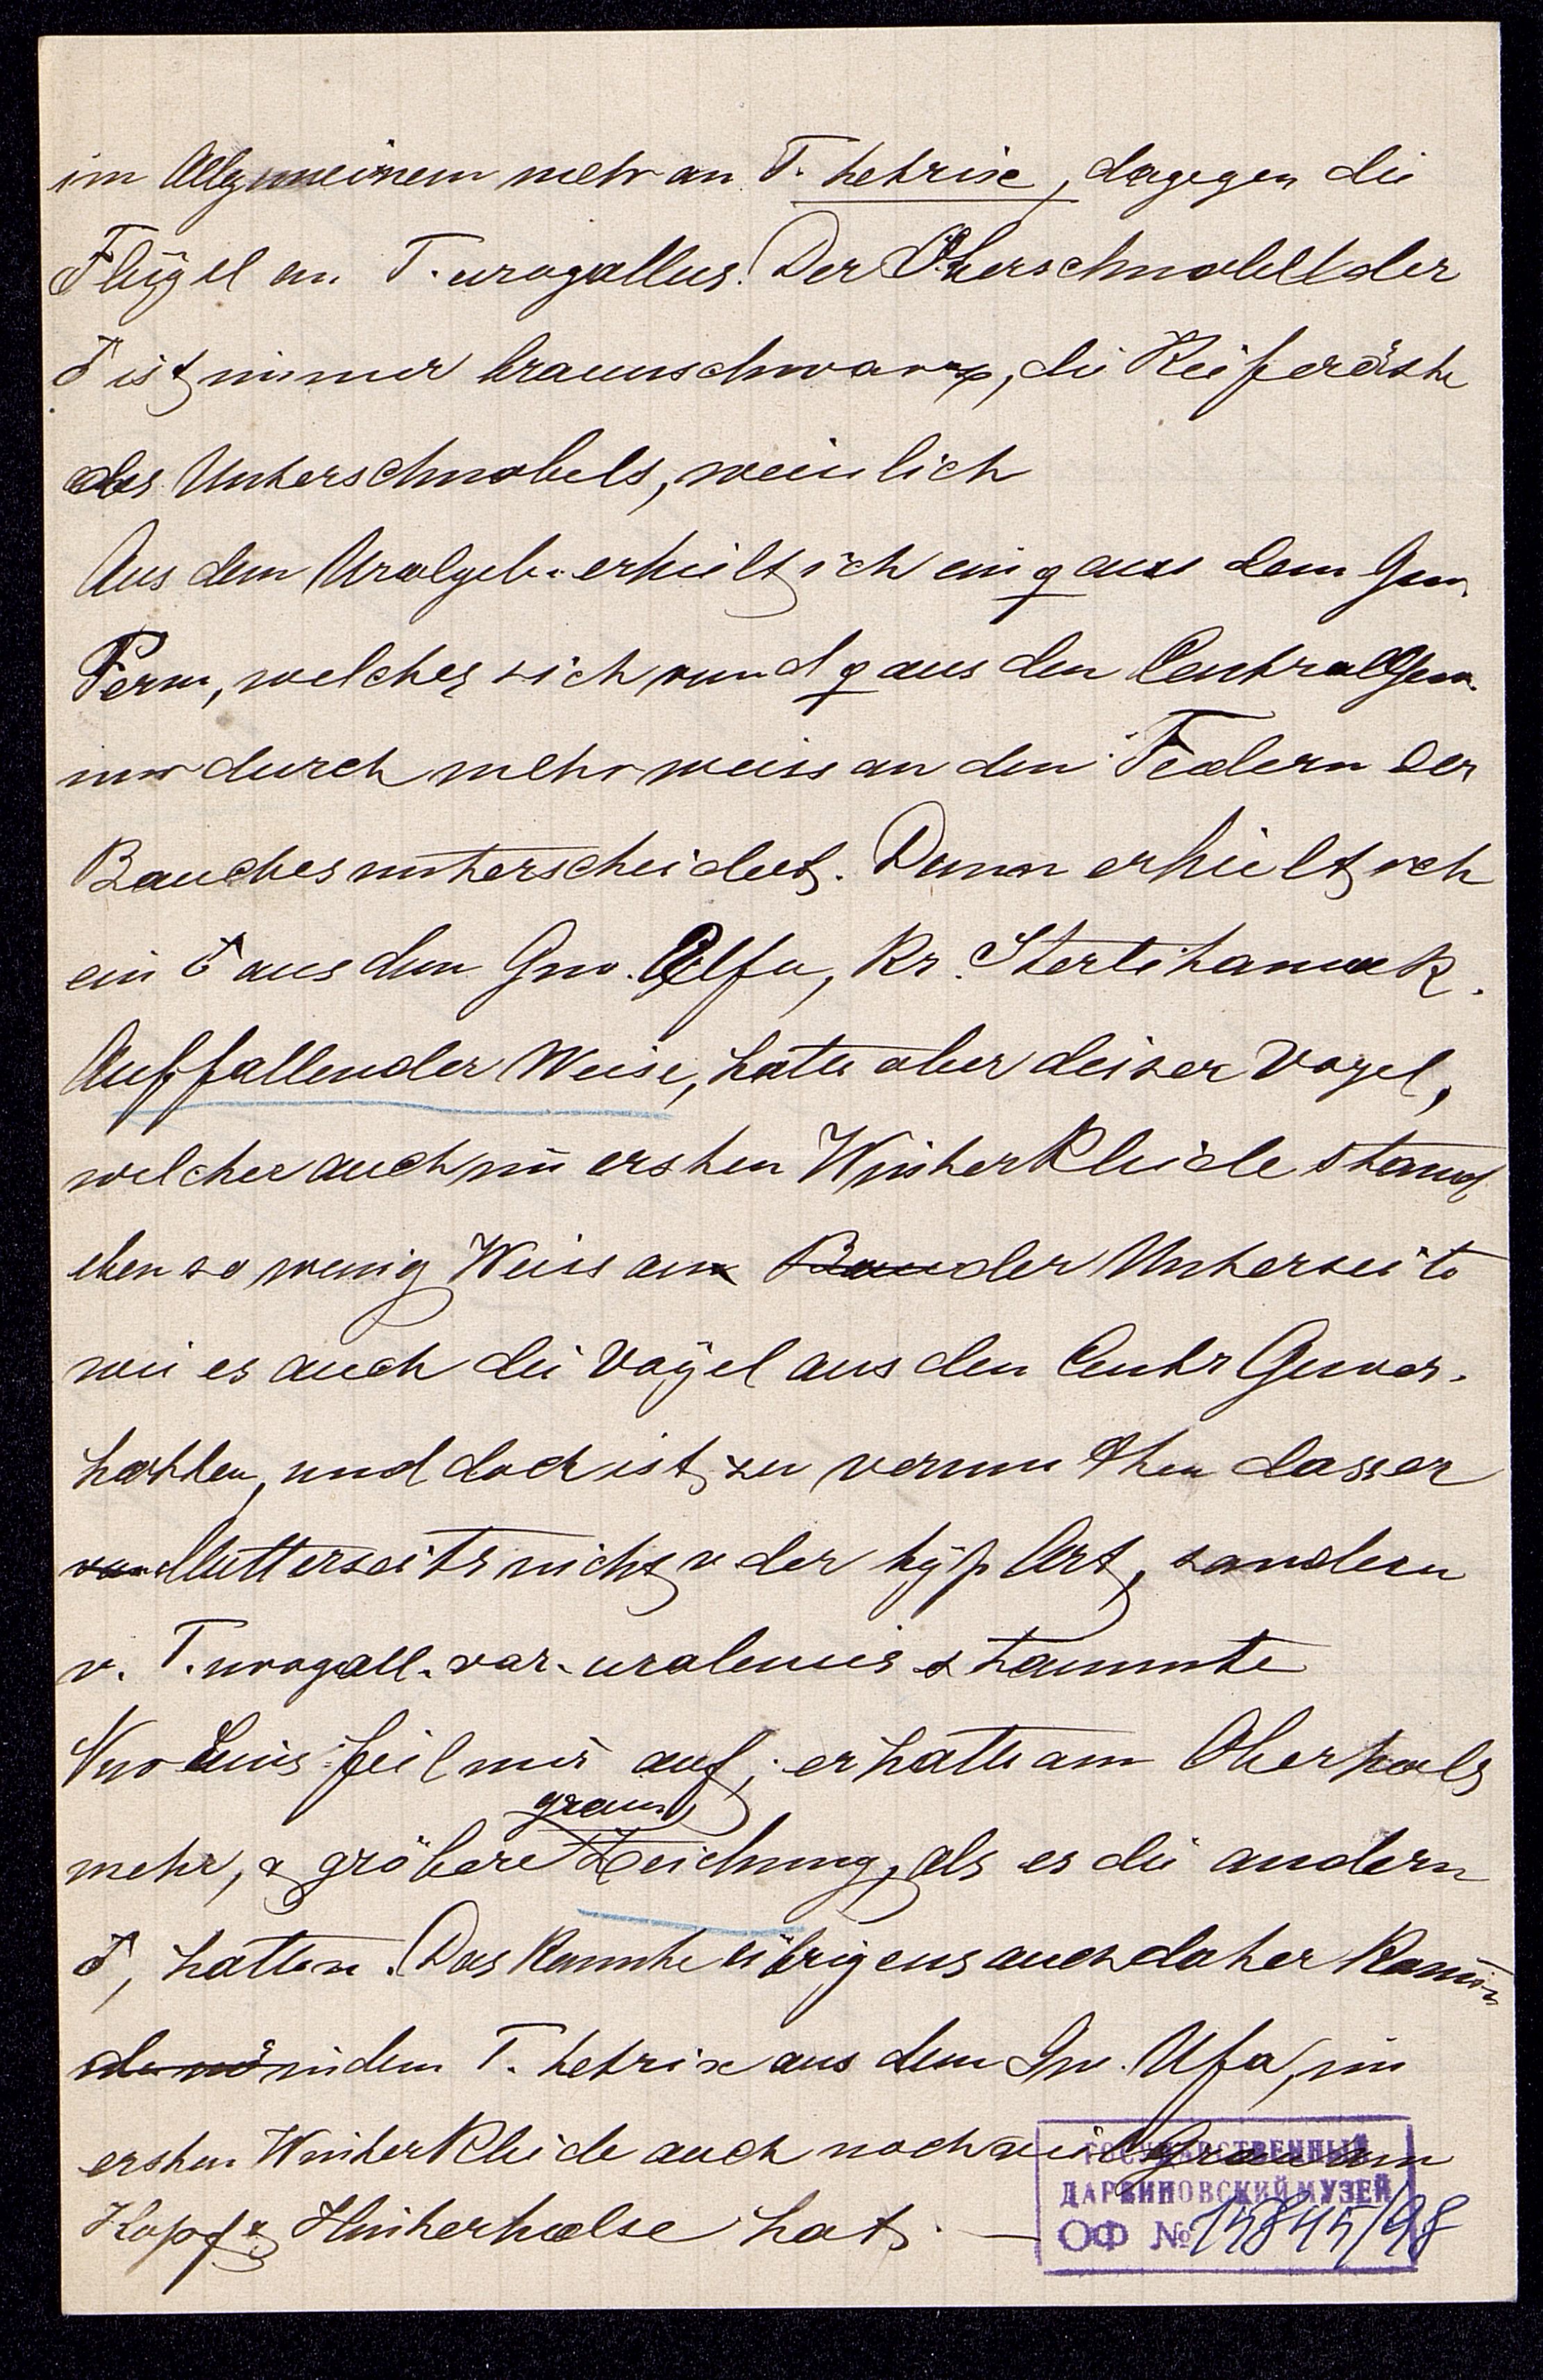 im Allgemeinem mehr an T. tetrix, dagegen die
Flügel an T. urogallus. Der Oberschnabel der
♂ ist immer braunschwarz, die Kieferäste
des Unterschnabels, weisslich
Aus dem Uralgeb. erhielt ich ein ♀ aus dem Guv.
Perm, welches sich von d ♀ aus den Central Guv.
nur durch mehr weiss an den Federn der
Bauches unterscheidet. Dann erhielt ich
ein ♂ aus dem Guv. Ufa, Kr. Sterlitamak.
Auffallender Weise, hatte aber deiser Vogel,
welcher auch im ersten Winterkleide stand
eben so wenig Weiss an der Unterseite
wie es auch die Vögel aus den Centr Guver.
hatten, und doch ist zu vermuthen dass er
Mutterseits nicht v der typ Art, sondern
v. T. urogall. var. uralensis stammte
Nur Eins feil mir auf, er hatte am Oberhals
graue
mehr, & gröbere Zeichnung, als es die andern
♂, hatten. Das kannte übrigens auch daher kommen
indem T. tetrix aus dem Guv. Ufa, im
ersten Winterkleide auch noch viel Grau am
Kopf & Hinterhalse hat. —
ГОСУДАРСТВЕННЫЙ
ДАРВИНОВСКИЙ МУЗЕЙ
ОФ №15845/98